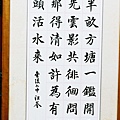 半畝方塘一鑑開
光雲影共徘徊問
那得清如許為有
頭活水來